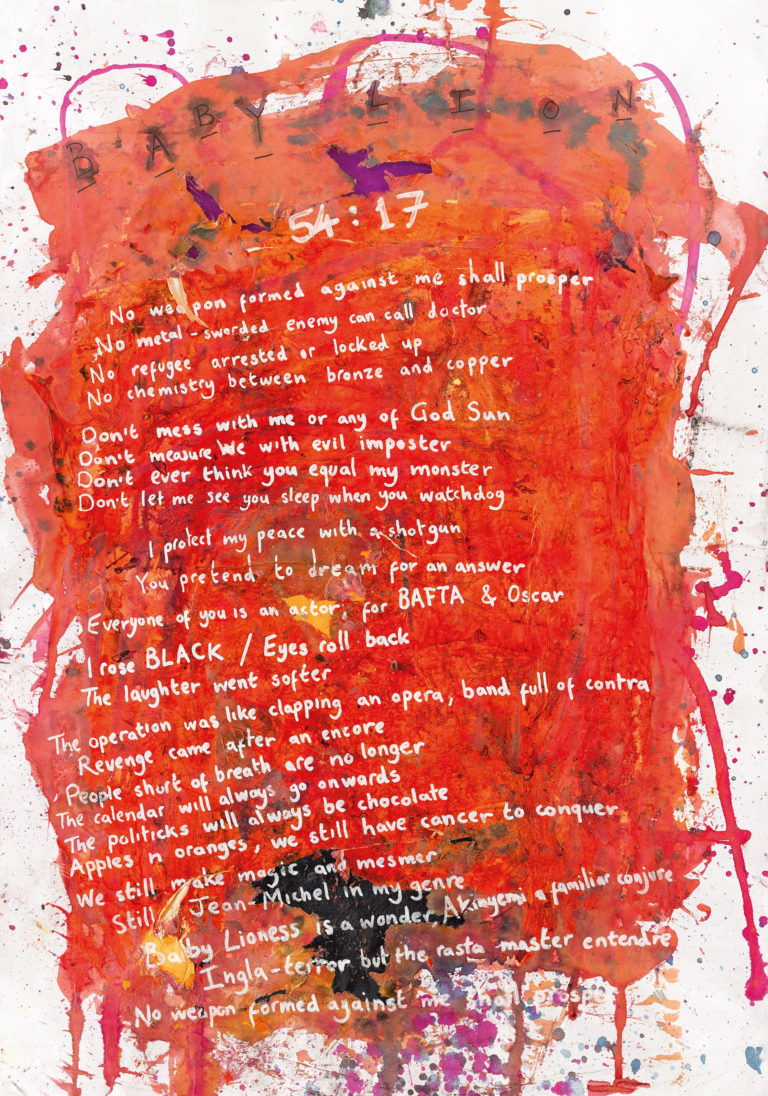 BABY LION
54:17
No weapon formed against me shall prosper
No metal-sworded enemy can call doctor
No refugee arrested or locked up
No chemistry between bronze and copper
Don't mess with me or any of God Sun
Don't measure We with evil imposter
Don't ever think you equal my monster
Don't let me see you sleep when you watchdog
I protect my peace with a shotgun
You pretend to dream for an answer
Everyone of you is an actor, for BAFTA & Oscar
I rose BLACK / Eyes roll back
The laughter went softer
The operation was like clapping an opera, band full of contra
Revenge came after an encore
People short of breath are no longer
The calendar will always go onwards
The politicks will always be chocolate
Apples n oranges, we still have cancer to conquer
We still make magic and mesmer
Still Jean-Michel in my genre
Baby Lioness is a wonder Akinyemi a familiar conjure
Ingla-terror but the rasta master entendre
No weapon formed against me shall prosper